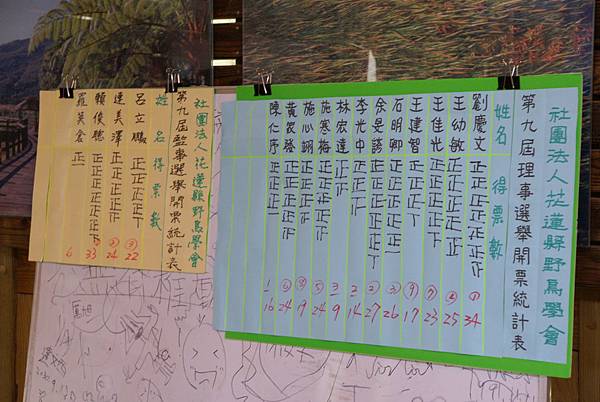 社團法人花蓮縣野鳥學會
第九屆理事選舉開票統計表
姓名 得票數
劉慶文 正正正正正正正 ① 34
王幼敏 正正正正正 ④ 25
王佳光 正正正正 23
王建智 正正正 17
石明卿 正正正正正一 ③ 26
余是蒨 正正正正正 ② 27
李光中 正正正 2 14
林宏達 正正 3 9
施寒梅 正正正正正 ⑤ 24
施心翊 正正正正 19
黃筱發 正正正正正 ⑥ 24
陳仁序 正正正一 1 16
社團法人花蓮縣野鳥學會
第九屆監事選舉開票統計表
姓名 得票數
呂立鵬 正正正正 ③ 22
連美澤 正正正正正 ② 24
賴俊聰 正正正正正正 ① 33
羅英倉 正一 6